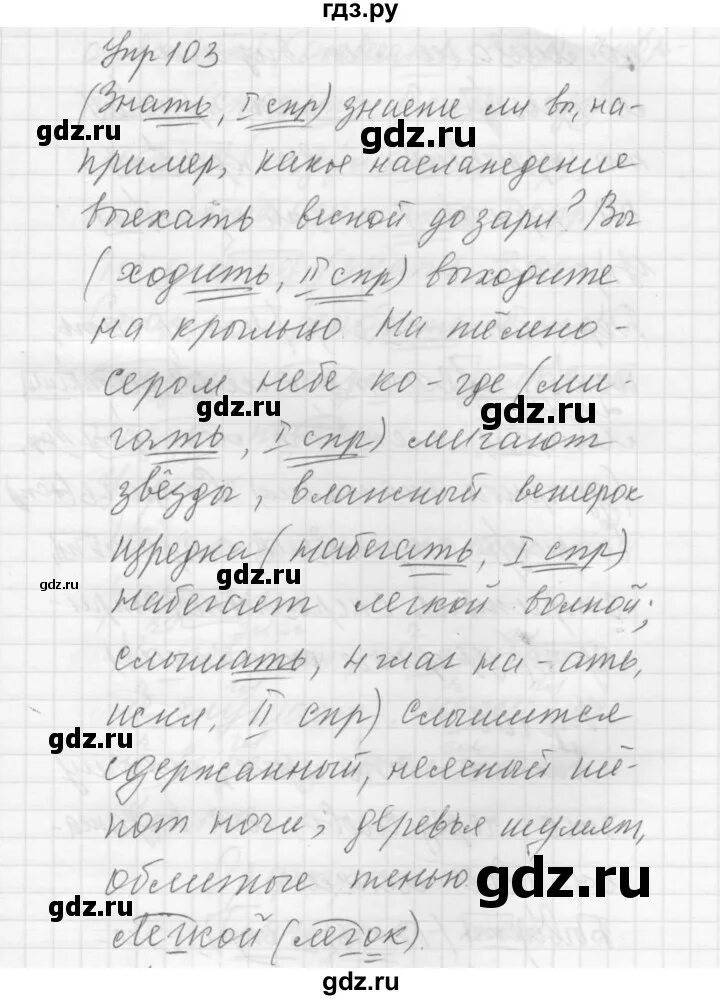 гдз.ру
Упр 103
(Знать, I спр) знаете ли вы, на-
gdz.ru
gdz.ru
пример, какое наслаждение
выехать весной до зари? Вы
(ходить, II спр) выходите
gdz.ru
на крыльцо. На тёмно-
сером небе ко-где (ми-
gdz.ru
gdz.ru
гать, I спр) мигают
звёзды, влажный ветерок
изредка (набегать, I спр)
gdz.ru
gdz.ru
набегает легкой волной;
слышать, 4 глаг на -ать,
искл. II спр) слышится
gdz.ru
сдержанный, неясный шё-
пот ночи, деревья шумят,
gdz.ru
облитые тенью.
gdz.ru
Легкой (легок).
gdz.ru
gdz.ru